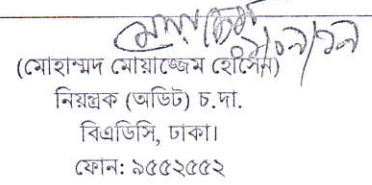 (মোহাম্মদ মোয়াজ্জেম হোসেন)
নিয়ন্ত্রক (অডিট) চ.দা.
বিএডিসি, ঢাকা।
ফোন: ৯৫৫২৫৫২